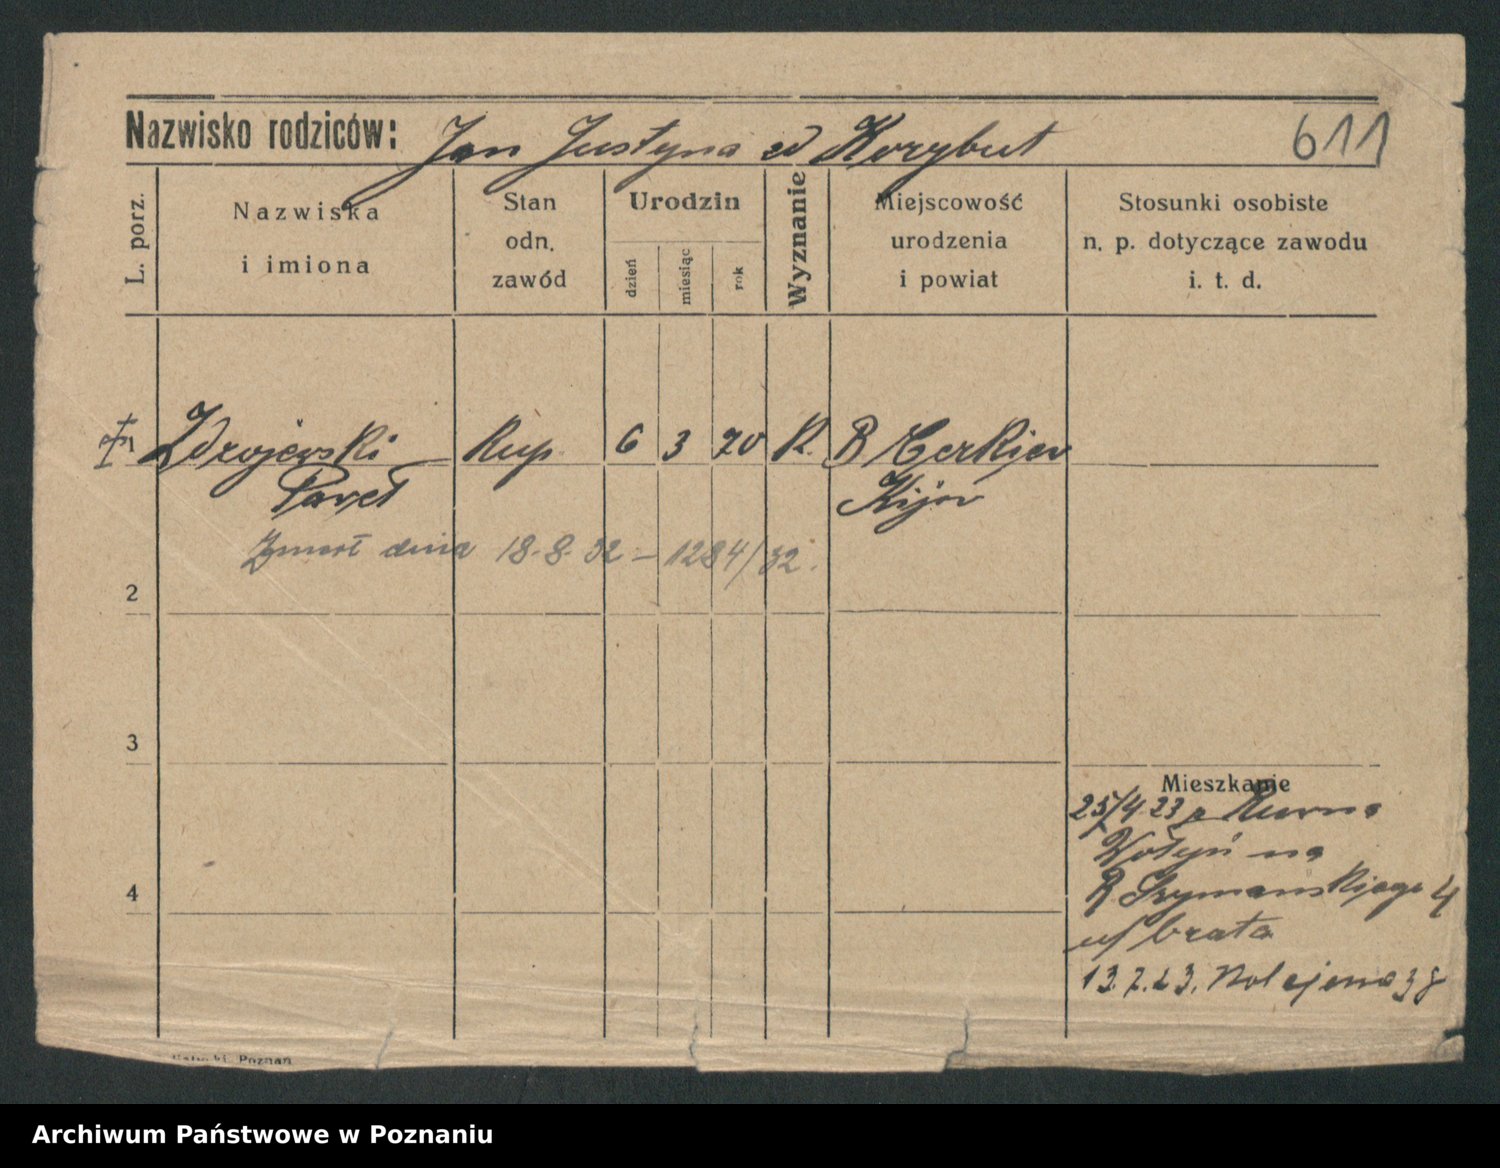 Nazwisko rodziców: Jan Justyna zd Korybut
611
L. porz.
Nazwiska i imiona
Stan odn. zawód
Urodzin
dzień
miesiąc
rok
Wyznanie
Miejscowość urodzenia i powiat
Stosunki osobiste n. p. dotyczące zawodu i. t. d.
1 Zdrojewski Kup. 6 3 70 K. B Cerkiew
Paweł Kijow
Zmarł dnia 18-8-32 – 1284/32.
2
3
4
Mieszkanie
25/4 23 z Rowna
Wołyń na
R Szymańskiego 4
u/ brata
13.7.23. Kolejowa 38
Poznań
Archiwum Państwowe w Poznaniu